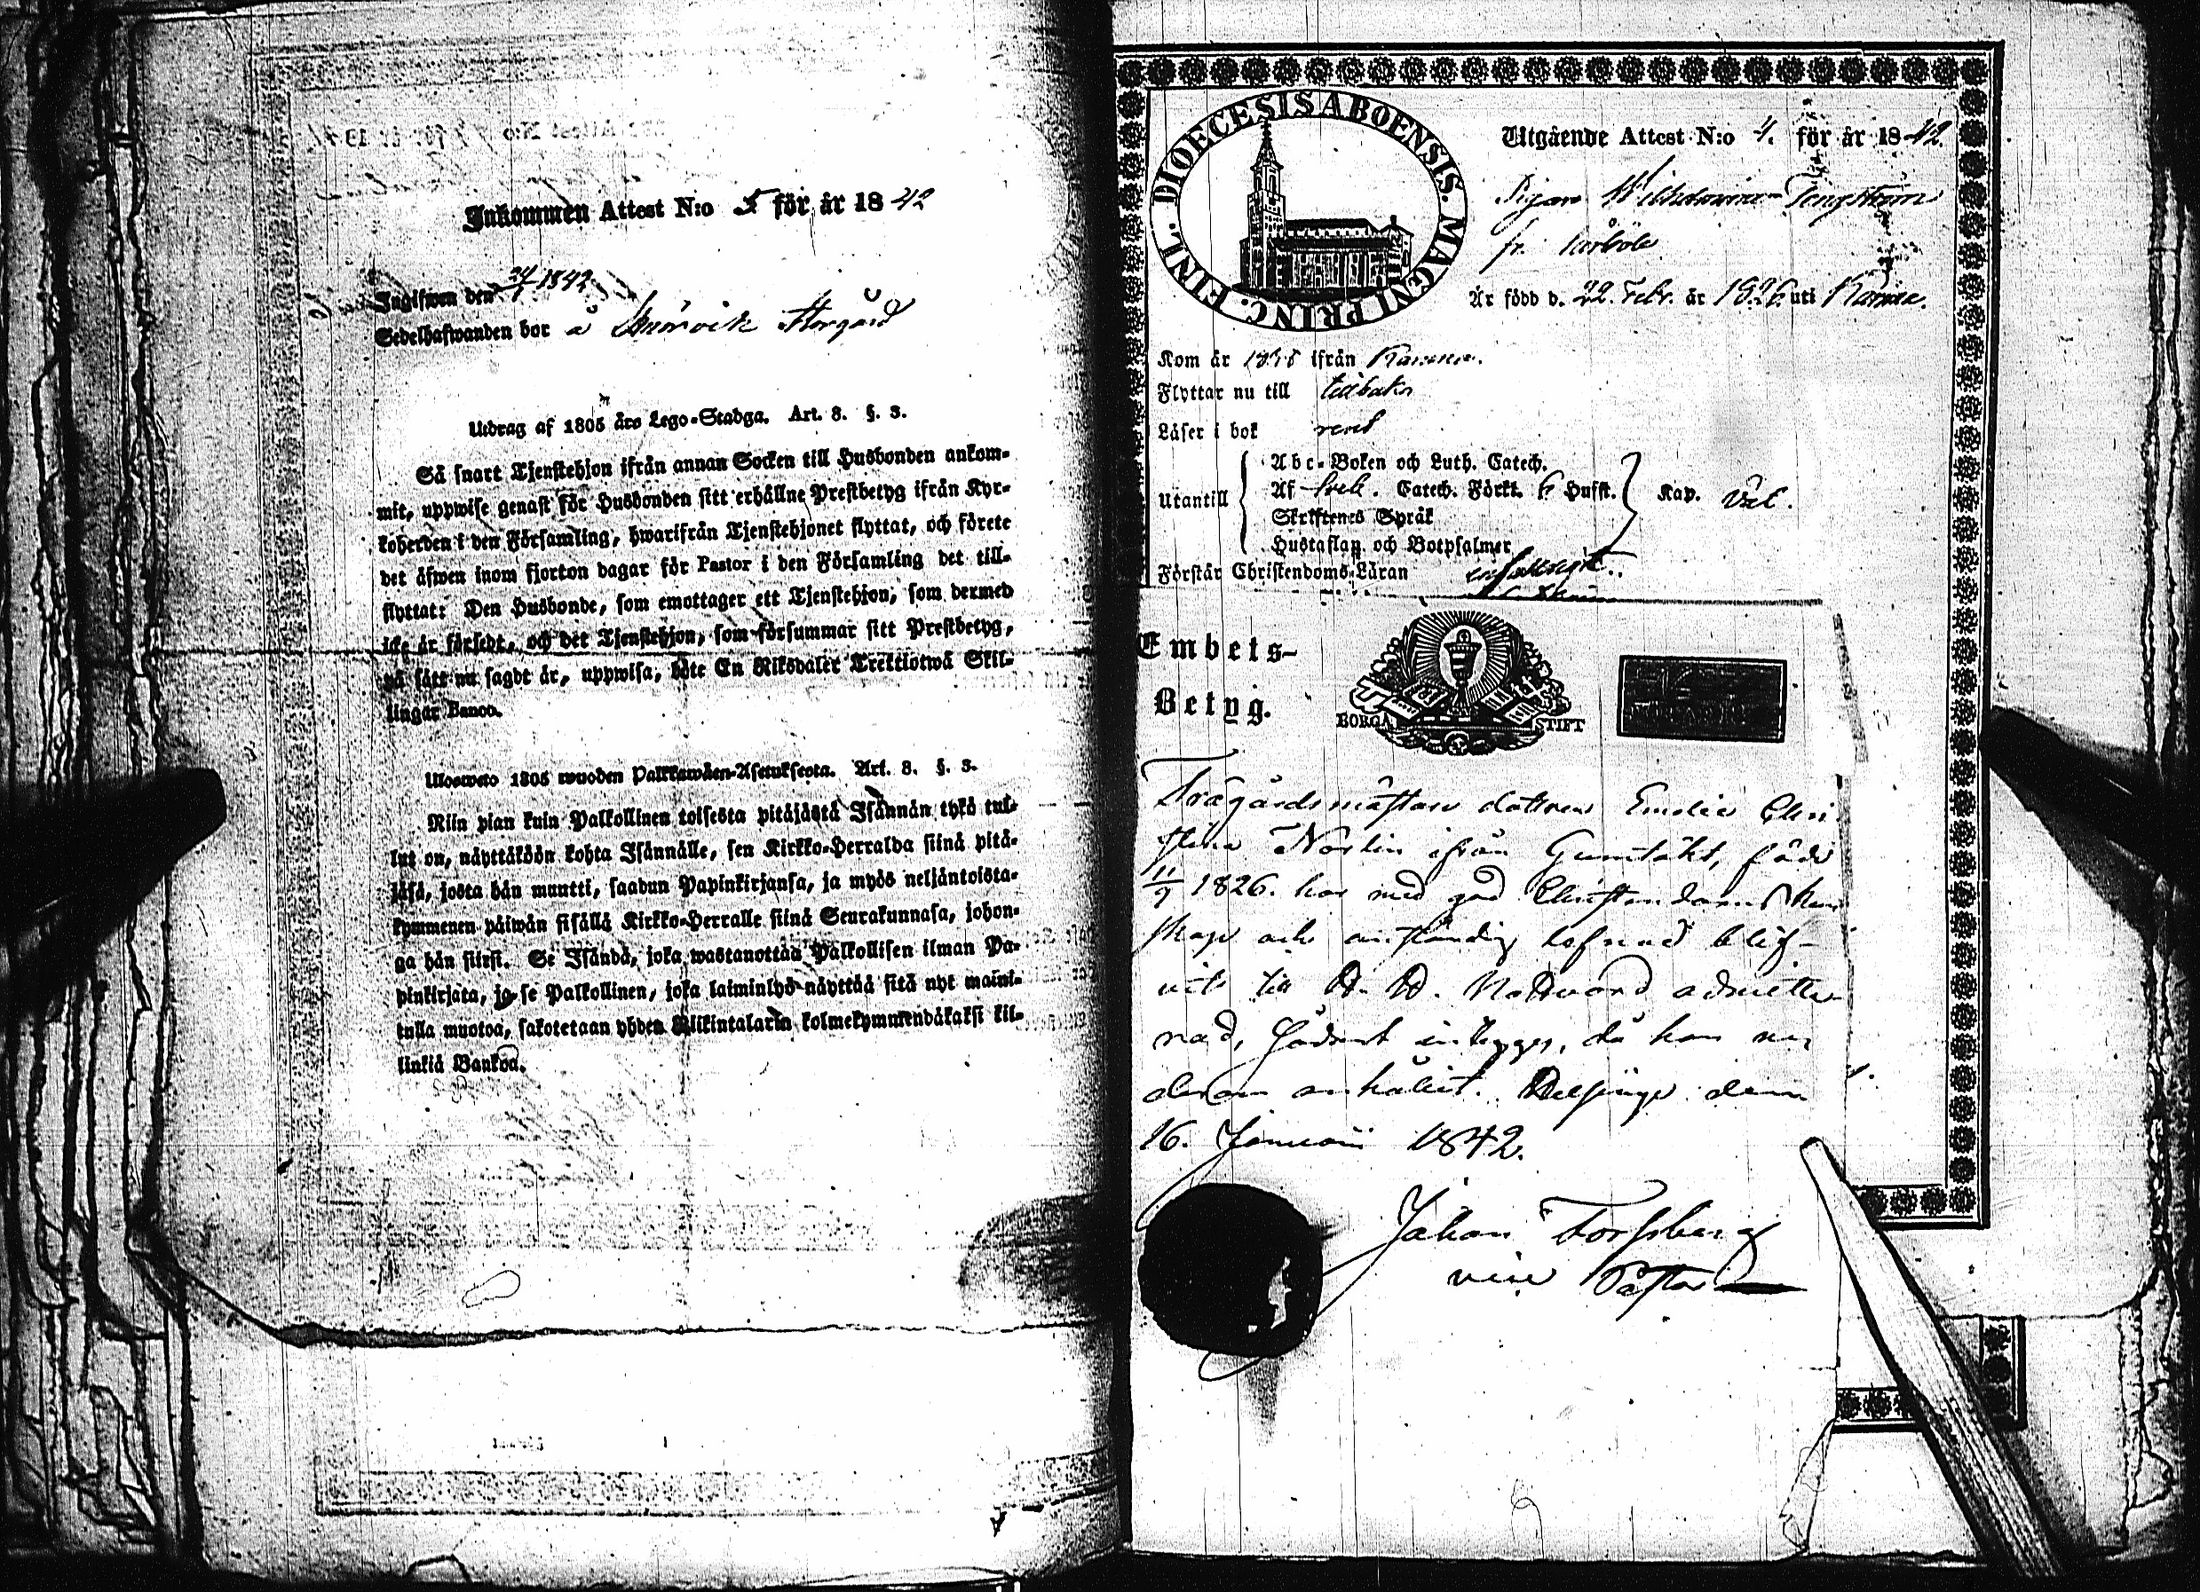 Inkommen Attest N:o 5 för år 1842
Ingifwen den 24/1 1842
Sedelhafwanden bor å Storgård
Utdrag af 1805 års Lego-Stadga. Art. 8. §. 3.
Så snart Tjenstehjon ifrån annan Socken till Husbonden ankom-
mit, uppwise genast för Husbonden sitt erhållne Prestbetyg ifrån Kyr-
koherden i den Församling, hwarifrån Tjenstehjonet flyttat, och förete
det äfwen inom fjorton dagar för Pastor i den Församling det till-
flyttat: Den Husbonde, som emottager ett Tjenstehjon, som dermed
icke är försedt, och det Tjenstehjon, som försummar sitt Prestbetyg,
på sätt nu sagdt är, uppwisa, böte En Riksdaler Trettiotwå Skil-
lingar Banco.
Ulosweto 1805 wuoden Palkkawäen-Asetuksesta. Art. 8. §. 3.
Niin pian kuin Palkollinen toisesta pitäjästä Isännän tykö tul-
lut on, näyttäköön kohta Isännälle, sen Kirkko-Herralda siinä pitä-
jäsä, josta hän muutti, saadun Papinkirjansa, ja myös neljäntoista-
kymmenen päiwän sisällä Kirkko-Herralle siinä Seurakunnasa, johon-
ga hän siirsi. Se Isändä, joka wastanottaa Palkollisen ilman Pa-
pinkirjata, ja se Palkollinen, joka laiminlyö näyttää sitä nyt maini-
tulla muotoa, sakotetaan yhden Riikintalarin kolmekymmendäkaksi kil-
linkiä Bankoa.
DIOECESIS ABOENSIS. MAGNI PRINC. FINL.
Utgående Attest N:o 4. för år 1842.
Pigan Wilhelmina Tengström
fr.
Är född d. 22. Febr. år 1826 uti
Kom år ifrån
Flyttar nu till tillbaka
Läser i bok rent
Utantill
Abc-Boken och Luth. Catech.
Af Sveb. Catech. Förkl. 6 Hufst.
Skriftenes Språk
Hustaflan och Botpsalmer
Kap. väl.
Förstår Christendoms-Läran enfaldigt.
Embets-
Betyg.
BORGÅ STIFT
Trägårdsmästare dottren Emelie Chri-
stina Norlin ifrån Gumtäkt, född
11/9 1826. har med god Christendoms kun-
skap och anständig lefnad blif-
vit till H. H. Nattvard admitte-
rad, sådant intygas, då hon nu
derom anhållit. Helsinge den
16. Januari 1842.
Johan Forssberg
vice Pastor